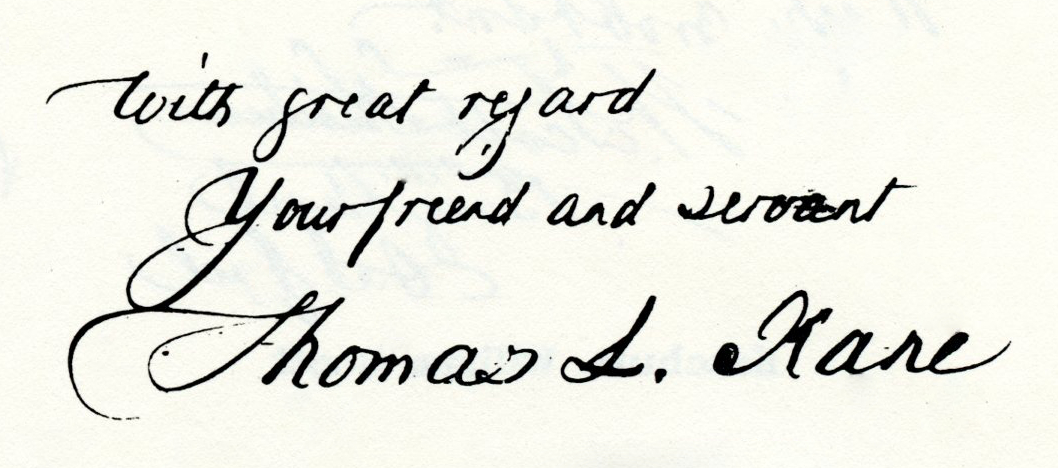 With great regard
Your friend and servant
Thomas L. Kane